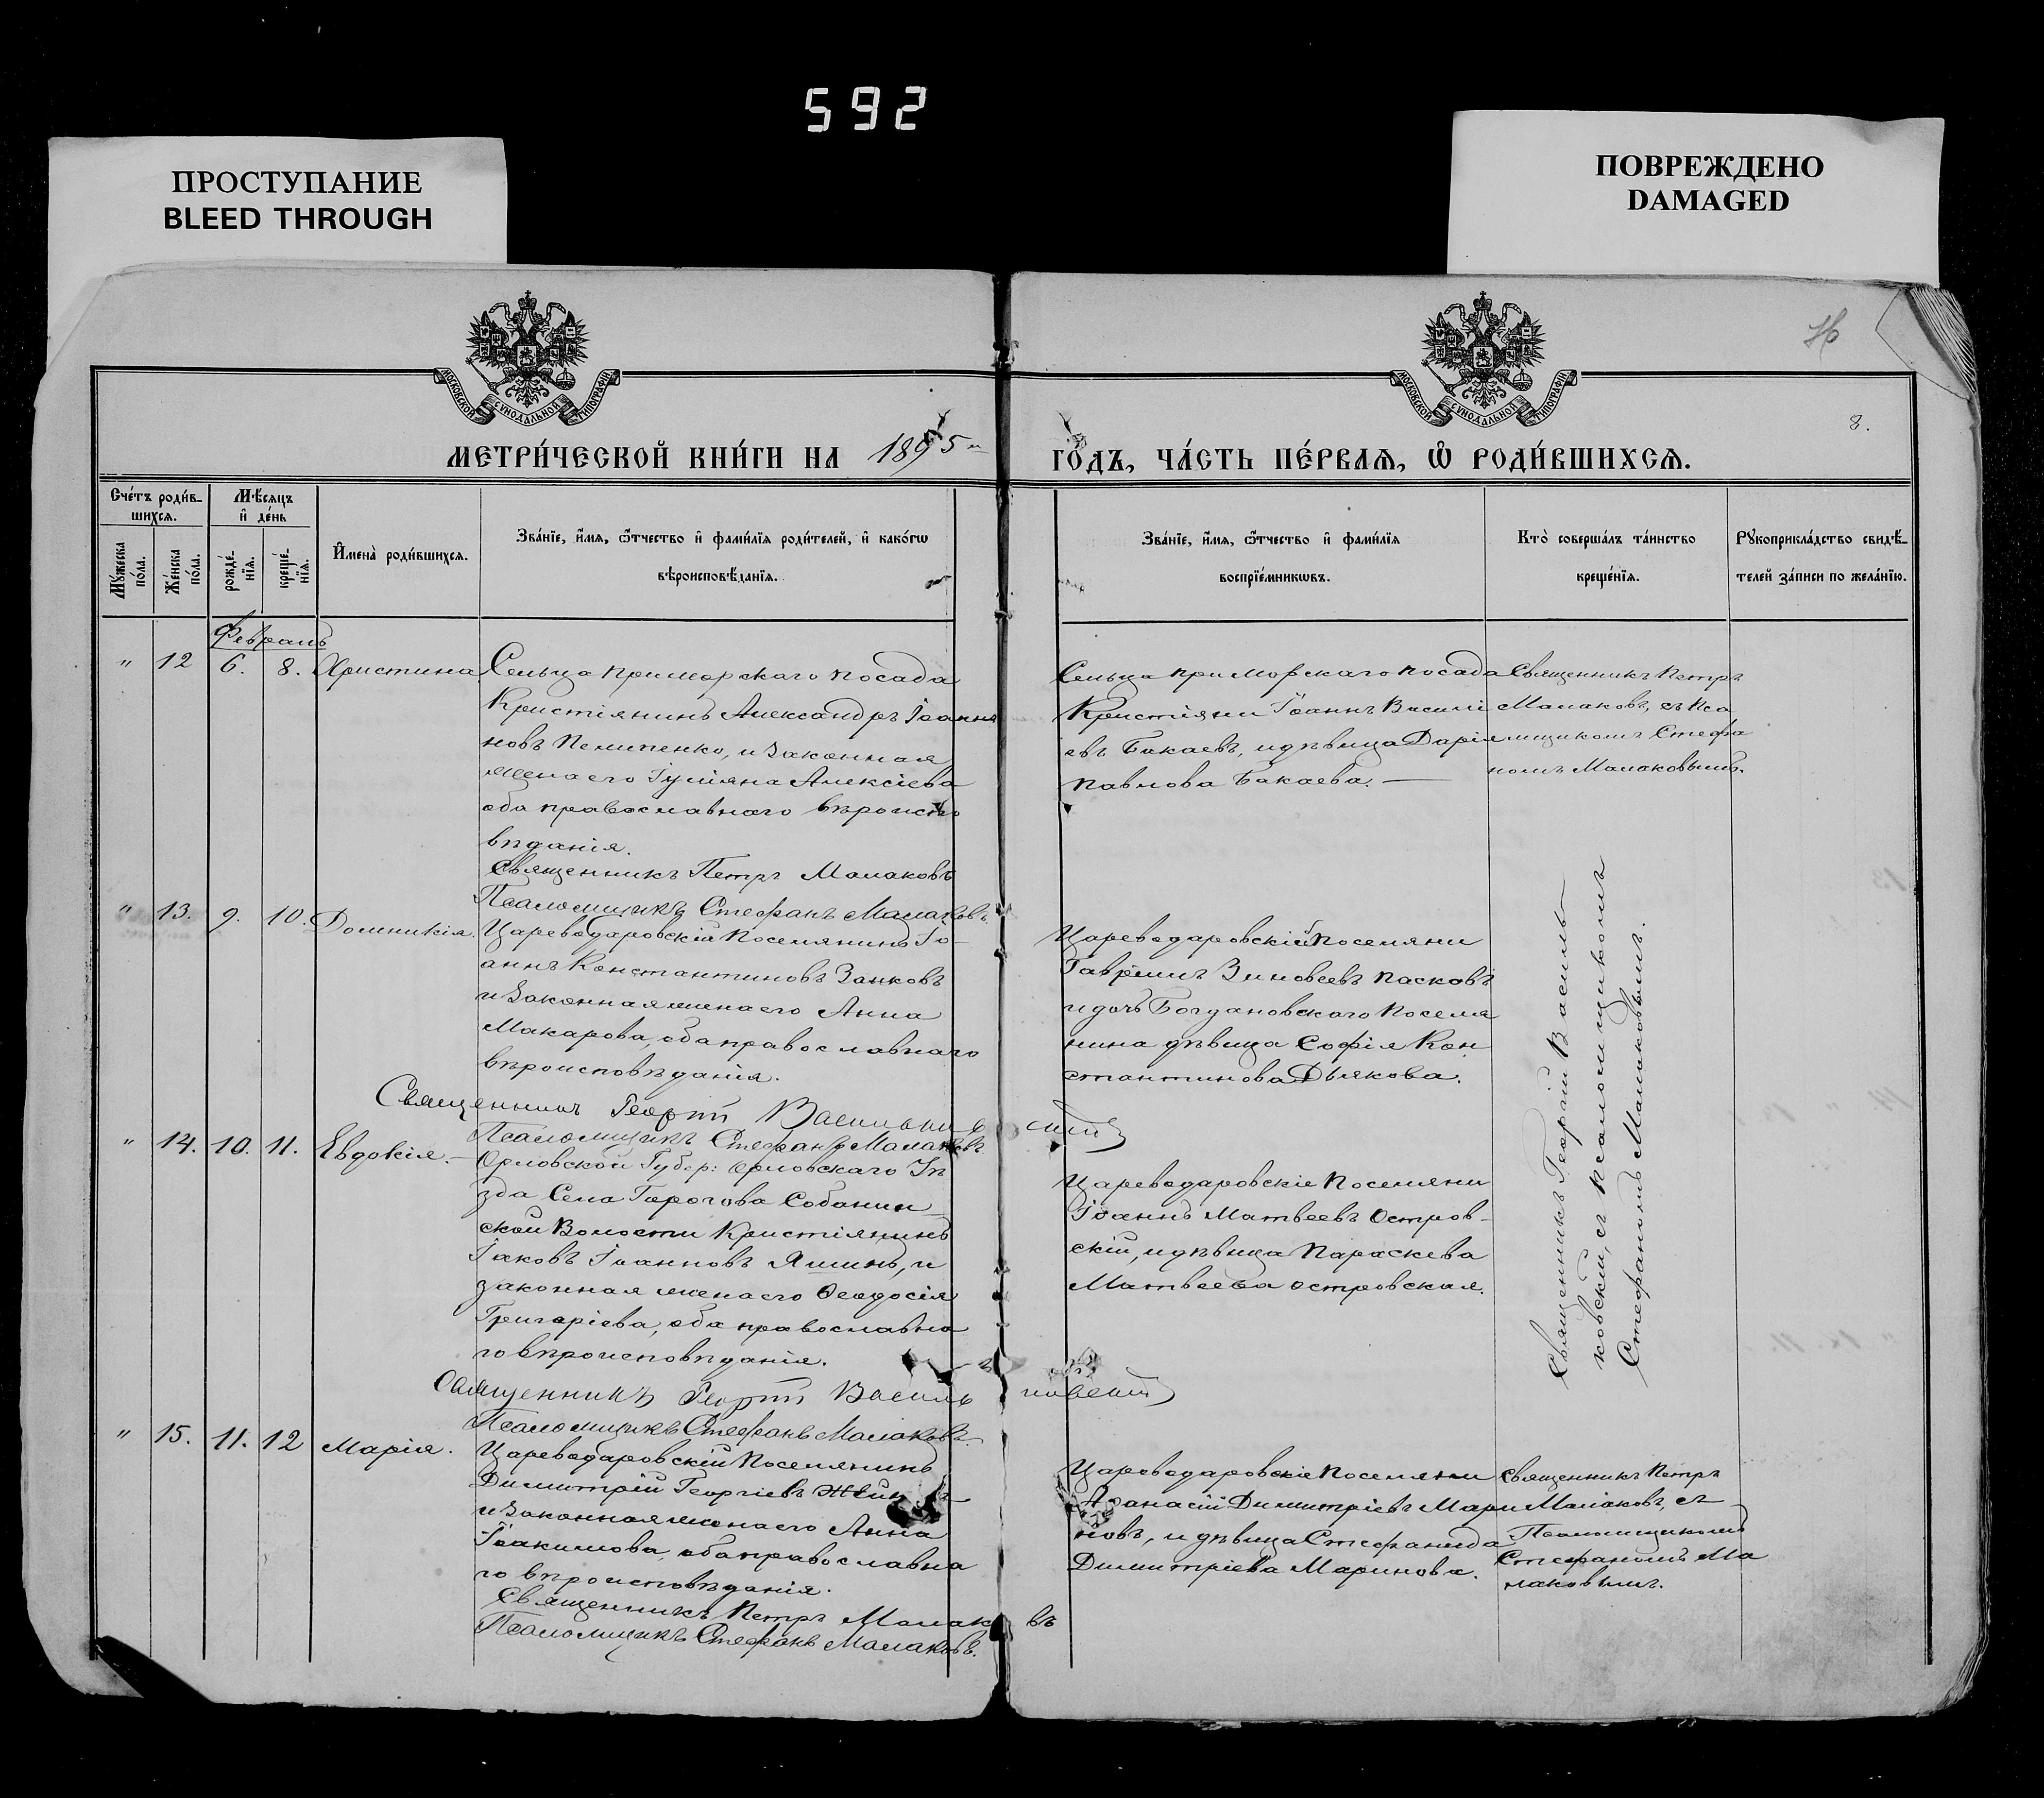 592
ПРОСТУПАНИЕ
BLEED THROUGH
ПОВРЕЖДЕНО
DAMAGED
МОСКОВСКОЙ СѴНОДАЛЬНОЙ ТИПОГРАФІИ
МОСКОВСКОЙ СѴНОДАЛЬНОЙ ТИПОГРАФІИ
8.
МЕТРИ́ЧЕСКОЙ КНИ́ГИ НА 1895 ГО́ДЪ, ЧА́СТЬ ПЕ́РВАѦ, Ѿ РОДИ́ВШИХСѦ.
Сче́тъ роди́в-
шихсѧ.
Мꙋ́жеска по́ла.
Же́нска по́ла.
Мѣ́сѧцъ
и҆ де́нь
рожде́-
нїѧ.
креще́-
нїѧ.
И҆мена̀ роди́вшихсѧ.
Зва́нїе, и҆́мѧ, ѻ҆́тчество и҆ фами́лїѧ роди́телей, и҆ како́гѡ
вѣроисповѣ́данїѧ.
Зва́нїе, и҆́мѧ, ѻ҆́тчество и҆ фами́лїѧ
воспрїе́мникѡвъ.
Кто̀ соверша́лъ та́инство
креще́нїѧ.
Рꙋкоприкла́дство свидѣ́-
телей за́писи по жела́нїю.
Февраль
" 12 6. 8. Христина
Сельца Приморскаго посада
Кристіянинъ Александръ Іоан
новъ Пелипенко, и Законная
жена его Іуліяна Алексіева
оба православнаго вѣроиспо
вѣданія.
Священникъ Петръ Малаковъ
Псаломщикъ Стефанъ Малаковъ.
Сельца приморскаго посада
Кристіяни Іоаннъ Василі
евъ Бакаевъ, и дѣвица Дарія
Павлова Бакаева. —
Священникъ Петръ
Малаковъ, съ Пса
мщикомъ Стефа
номъ Малаковымъ.
" 13. 9. 10. Домникія.
Цареводаровскій Поселянинъ Іо-
аннъ Константиновъ Занковъ
и Законная жена его Анна
Макарова, оба православнаго
вѣроисповѣданія.
Священникъ Георгій Васильковскій
Псаломщикъ Стефанъ Малаковъ
Цареводаровскій Поселяни
Гавріилъ Зиновеевъ Пасковъ
и дочь Богдановского Поселя
нина дѣвица Софія Кон
стантинова Дьякова.
Священникъ Георгій Василь-
ковскій, съ псаломщикомъ
Стефаномъ Малаковымъ.
" 14. 10. 11. Евдокія.
Орловской Губер: Орловскаго Уѣ
зда Села Горогова Собанин
ской Волости Кристіянинъ
Іаковъ Іоанновъ Яшинъ, и
законная жена его Ѳеодосія
Григаріева, оба православна
го вѣроисповѣданія.
Священникъ Георгій Васильковскій
Псаломщикъ Стефанъ Малаковъ.
Цареводаровскіе Поселяни
Іоаннъ Матвеевъ Остров-
скій, и дѣвица Параскева
Матвеева Островская.
" 15. 11. 12 Марія.
Цареводаровскій Поселянинъ
Димитрій Георгіевъ
и Законная жена его Анна
Іоакимова, оба православна
го вѣроисповѣданія.
Священникъ Петръ Малаковъ
Псаломщикъ Стефанъ Малаковъ.
Цароводаровскіе Поселяни
Аѳанасій Димитріевъ Мари
новъ, и дѣвица Стефанида
Димитріева Маринова.
Священникъ Петръ
Малаковъ, съ
Псаломщикомъ
Стефаномъ Ма
лаковымъ.